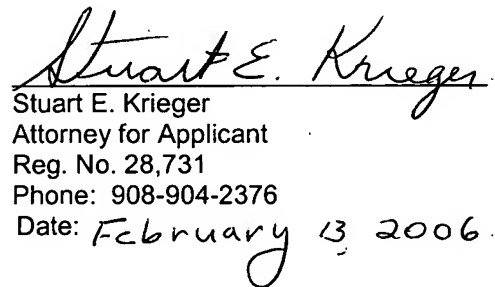 Stuart E. Krieger
Stuart E. Krieger
Attorney for Applicant
Reg. No. 28,731
Phone: 908-904-2376
Date: February 13, 2006.